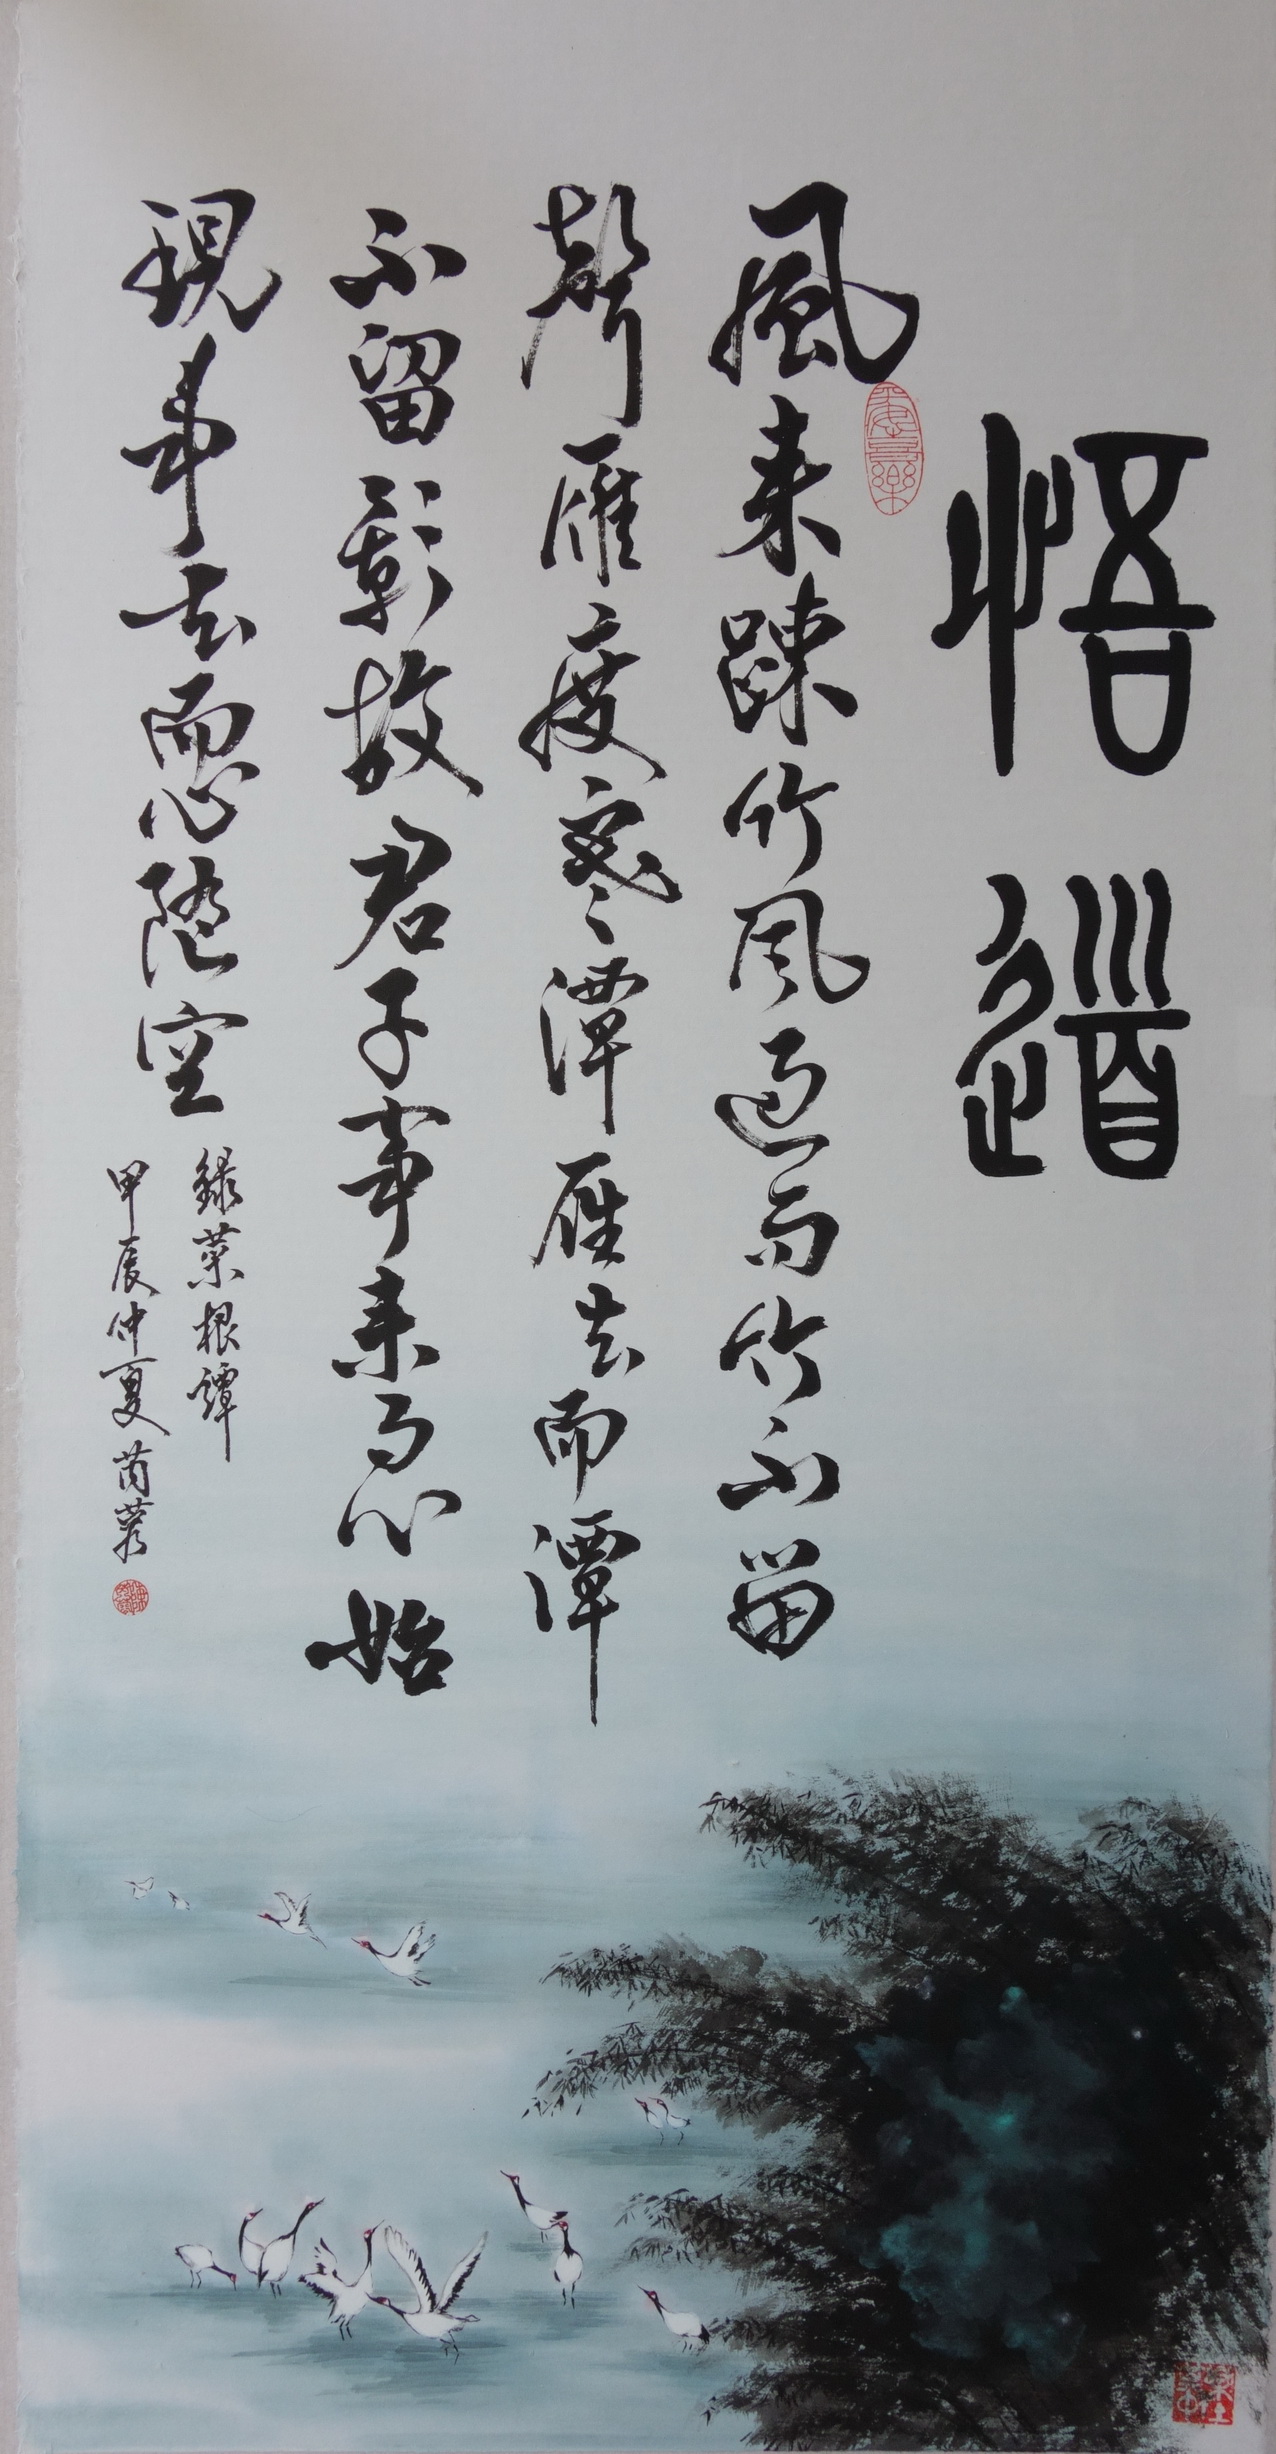 悟道
風来踈竹風過而竹不留
聲雁度寒潭雁去而潭
不留影故君子事来而心始
現事去而心隨空
錄菜根譚
甲辰仲夏茵蓉